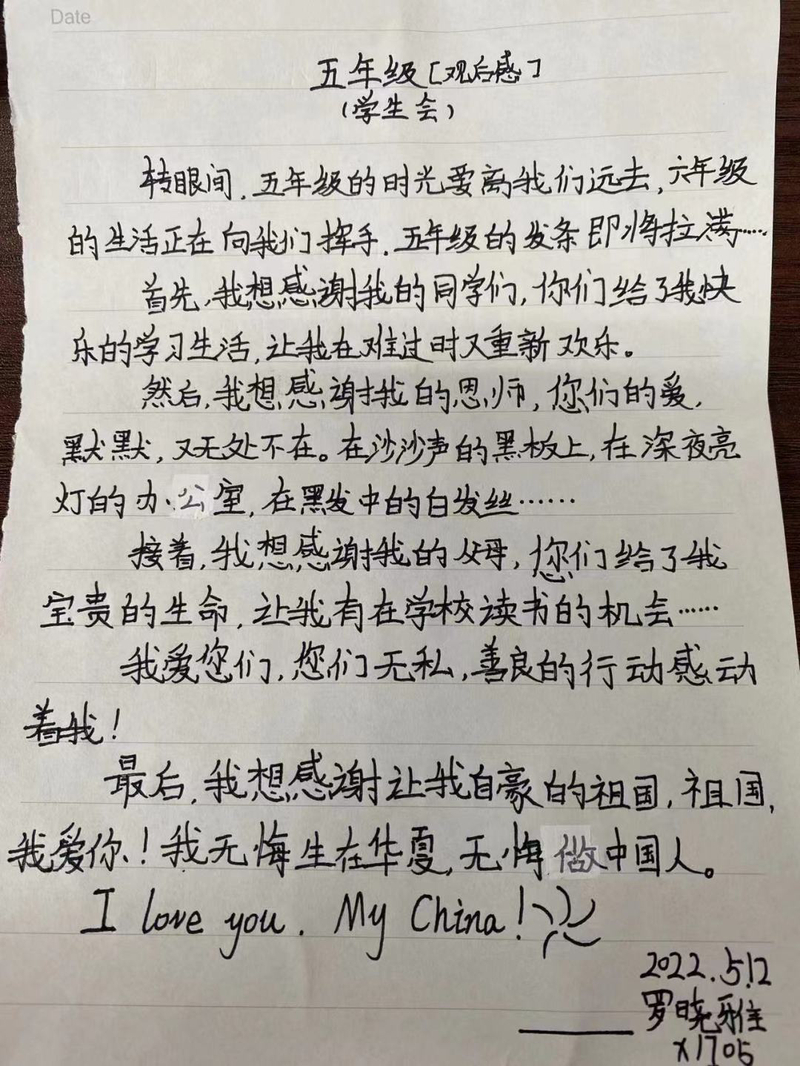 Date
五年级[观后感]
（学生会）
转眼间，五年级的时光要离我们远去，六年级
的生活正在向我们挥手，五年级的发条即将拉满……
首先，我想感谢我的同学们，你们给了我快
乐的学习生活，让我在难过时又重新欢乐。
然后，我想感谢我的恩师，您们的爱，
默默，又无处不在。在沙沙声的黑板上，在深夜亮
灯的办公室，在黑发中的白发丝……
接着，我想感谢我的父母，您们给了我
宝贵的生命，让我有在学校读书的机会……
我爱您们，您们无私，善良的行动感动
着我！
最后，我想感谢让我自豪的祖国，祖国，
我爱你！我无悔生在华夏，无悔做中国人。
I love you. My China!
2022.5.12
罗晓雅
x1705